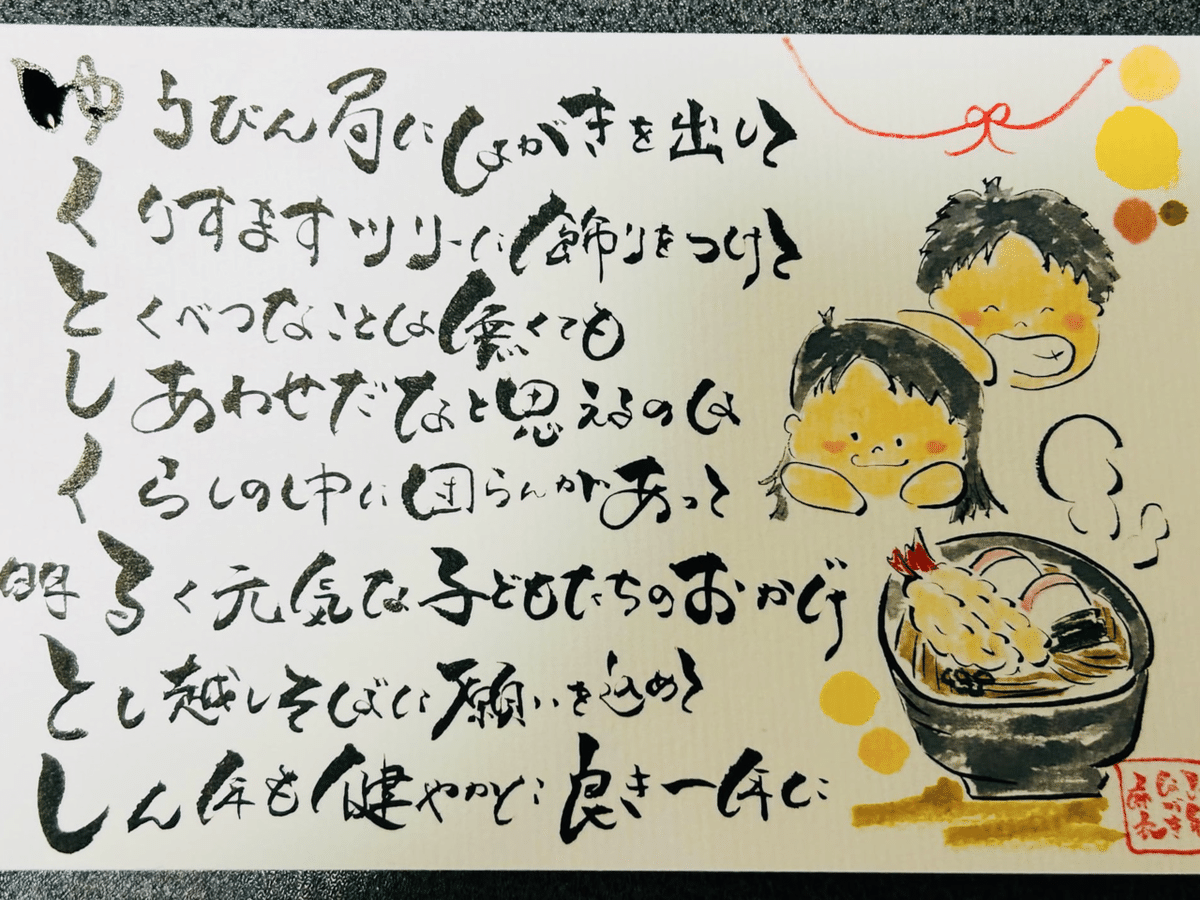 ゆうびん局にはがきを出して
くりすますツリーに飾りをつけて
とくべつなことは無くても
しあわせだなと思えるのは
くらしの中に団らんがあって
明るく元気な子どもたちのおかげ
とし越しそばに願いを込めて
しん年も健やかに良き一年に